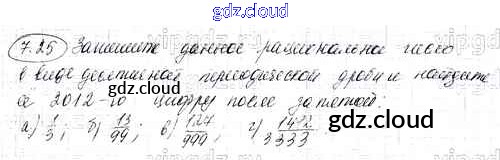 gdz.cloud
7.25 Запишите данное рациональное число
в виде десятичной периодической дроби и найдите
её 2012-ю цифру после запятой:
а) 1/3; б) 13/99; в) 127/999; г) 1472/3333
gdz.cloud gdz.cloud